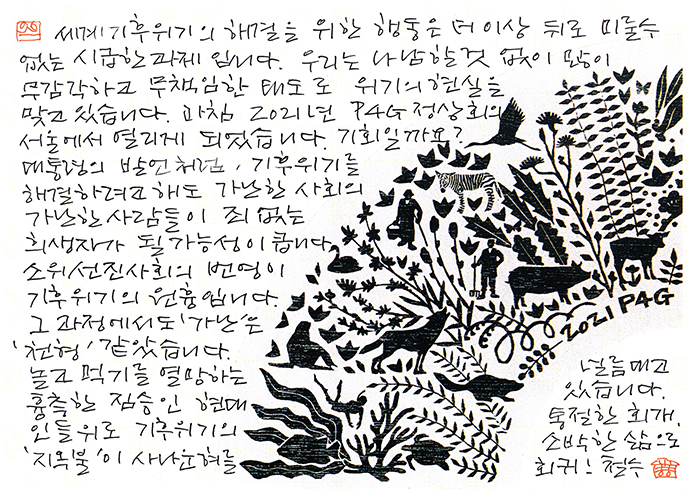 세계기후위기의 해결을 위한 행동은 더이상 뒤로 미룰수
없는 시급한 과제 입니다. 우리는 나남할것 없이 많이
무감각하고 무책임한 태도로 위기의 현실을
맞고 있습니다. 마침 2021년 P4G 정상회의
서울에서 열리게 되었습니다. 기회일까요?
대통령의 발언처럼, 기후위기를
해결하려고 해도 가난한 사회의
가난한 사람들이 죄 없는
희생자가 될 가능성이 큽니다.
소위선진사회의 번영이
기후위기의 원흉입니다.
그 과정에서도 '가난'은
'천형' 같았습니다.
놀고 먹기를 열망하는
흉측한 짐승인 현대
인들 위로 기후위기의
'지옥불'이 사나운혀를
2021 P4G
널름대고
있습니다.
통절한 회개,
소박한 삶으로
회귀! 철수